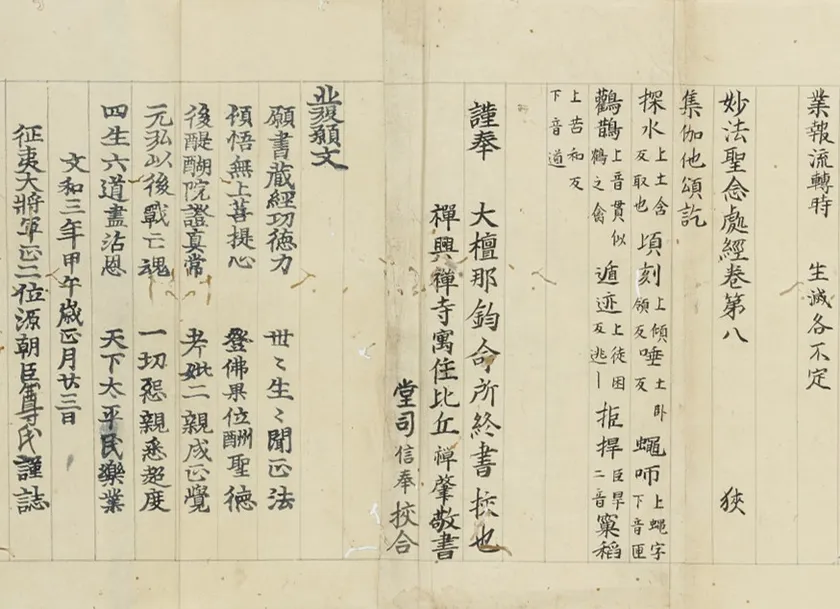 業報流轉時　生滅各不定
妙法聖念處經卷第八　狹
集伽他頌訖
探水上土含反取也頃刻上傾領反唾土卧反蠅咂上蠅字下音匝
鸛鵲上音貫似鶴之禽遁迹上徒困反逃｜拒捍臣旱二音窠稻
上苦和反
下音道
謹奉　大檀那鈞命所終書挍也
禪興禪寺寓住比丘禪肇敬書
堂司信奉挍合
發願文
願書藏經功德力　世〻生〻聞正法
頓悟無上菩提心　登佛果位酬聖德
後醍醐院證真常　考妣二親成正覺
元弘以後戰亡魂　一切怨親悉超度
四生六道盡沾恩　天下太平民樂業
文和三年甲午歲正月廿三日
征夷大將軍正二位源朝臣尊氏謹誌